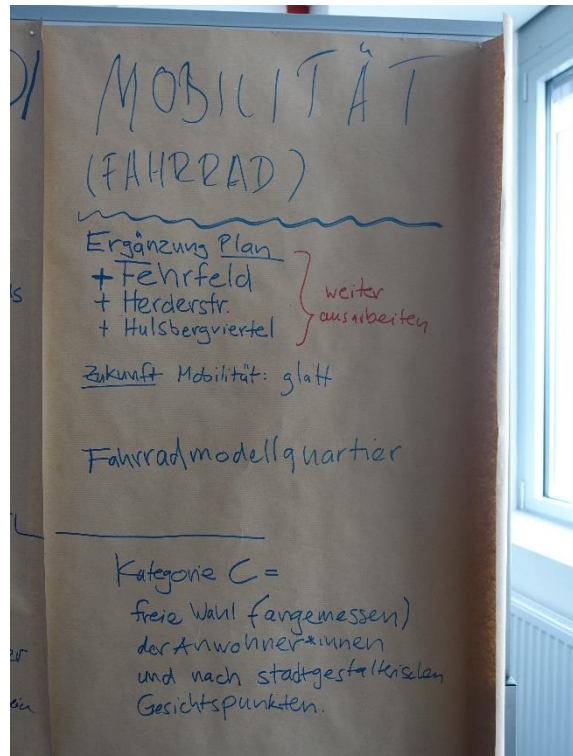 MOBILITÄT
(FAHRRAD)
Ergänzung Plan
+ Fehrfeld
+ Herderstr.
+ Hulsbergviertel
weiter
ausarbeiten
Zukunft Mobilität: glatt
Fahrradmodellquartier
Kategorie C =
freie Wahl (angemessen)
der Anwohner*innen
und nach stadtgestalterischen
Gesichtspunkten.